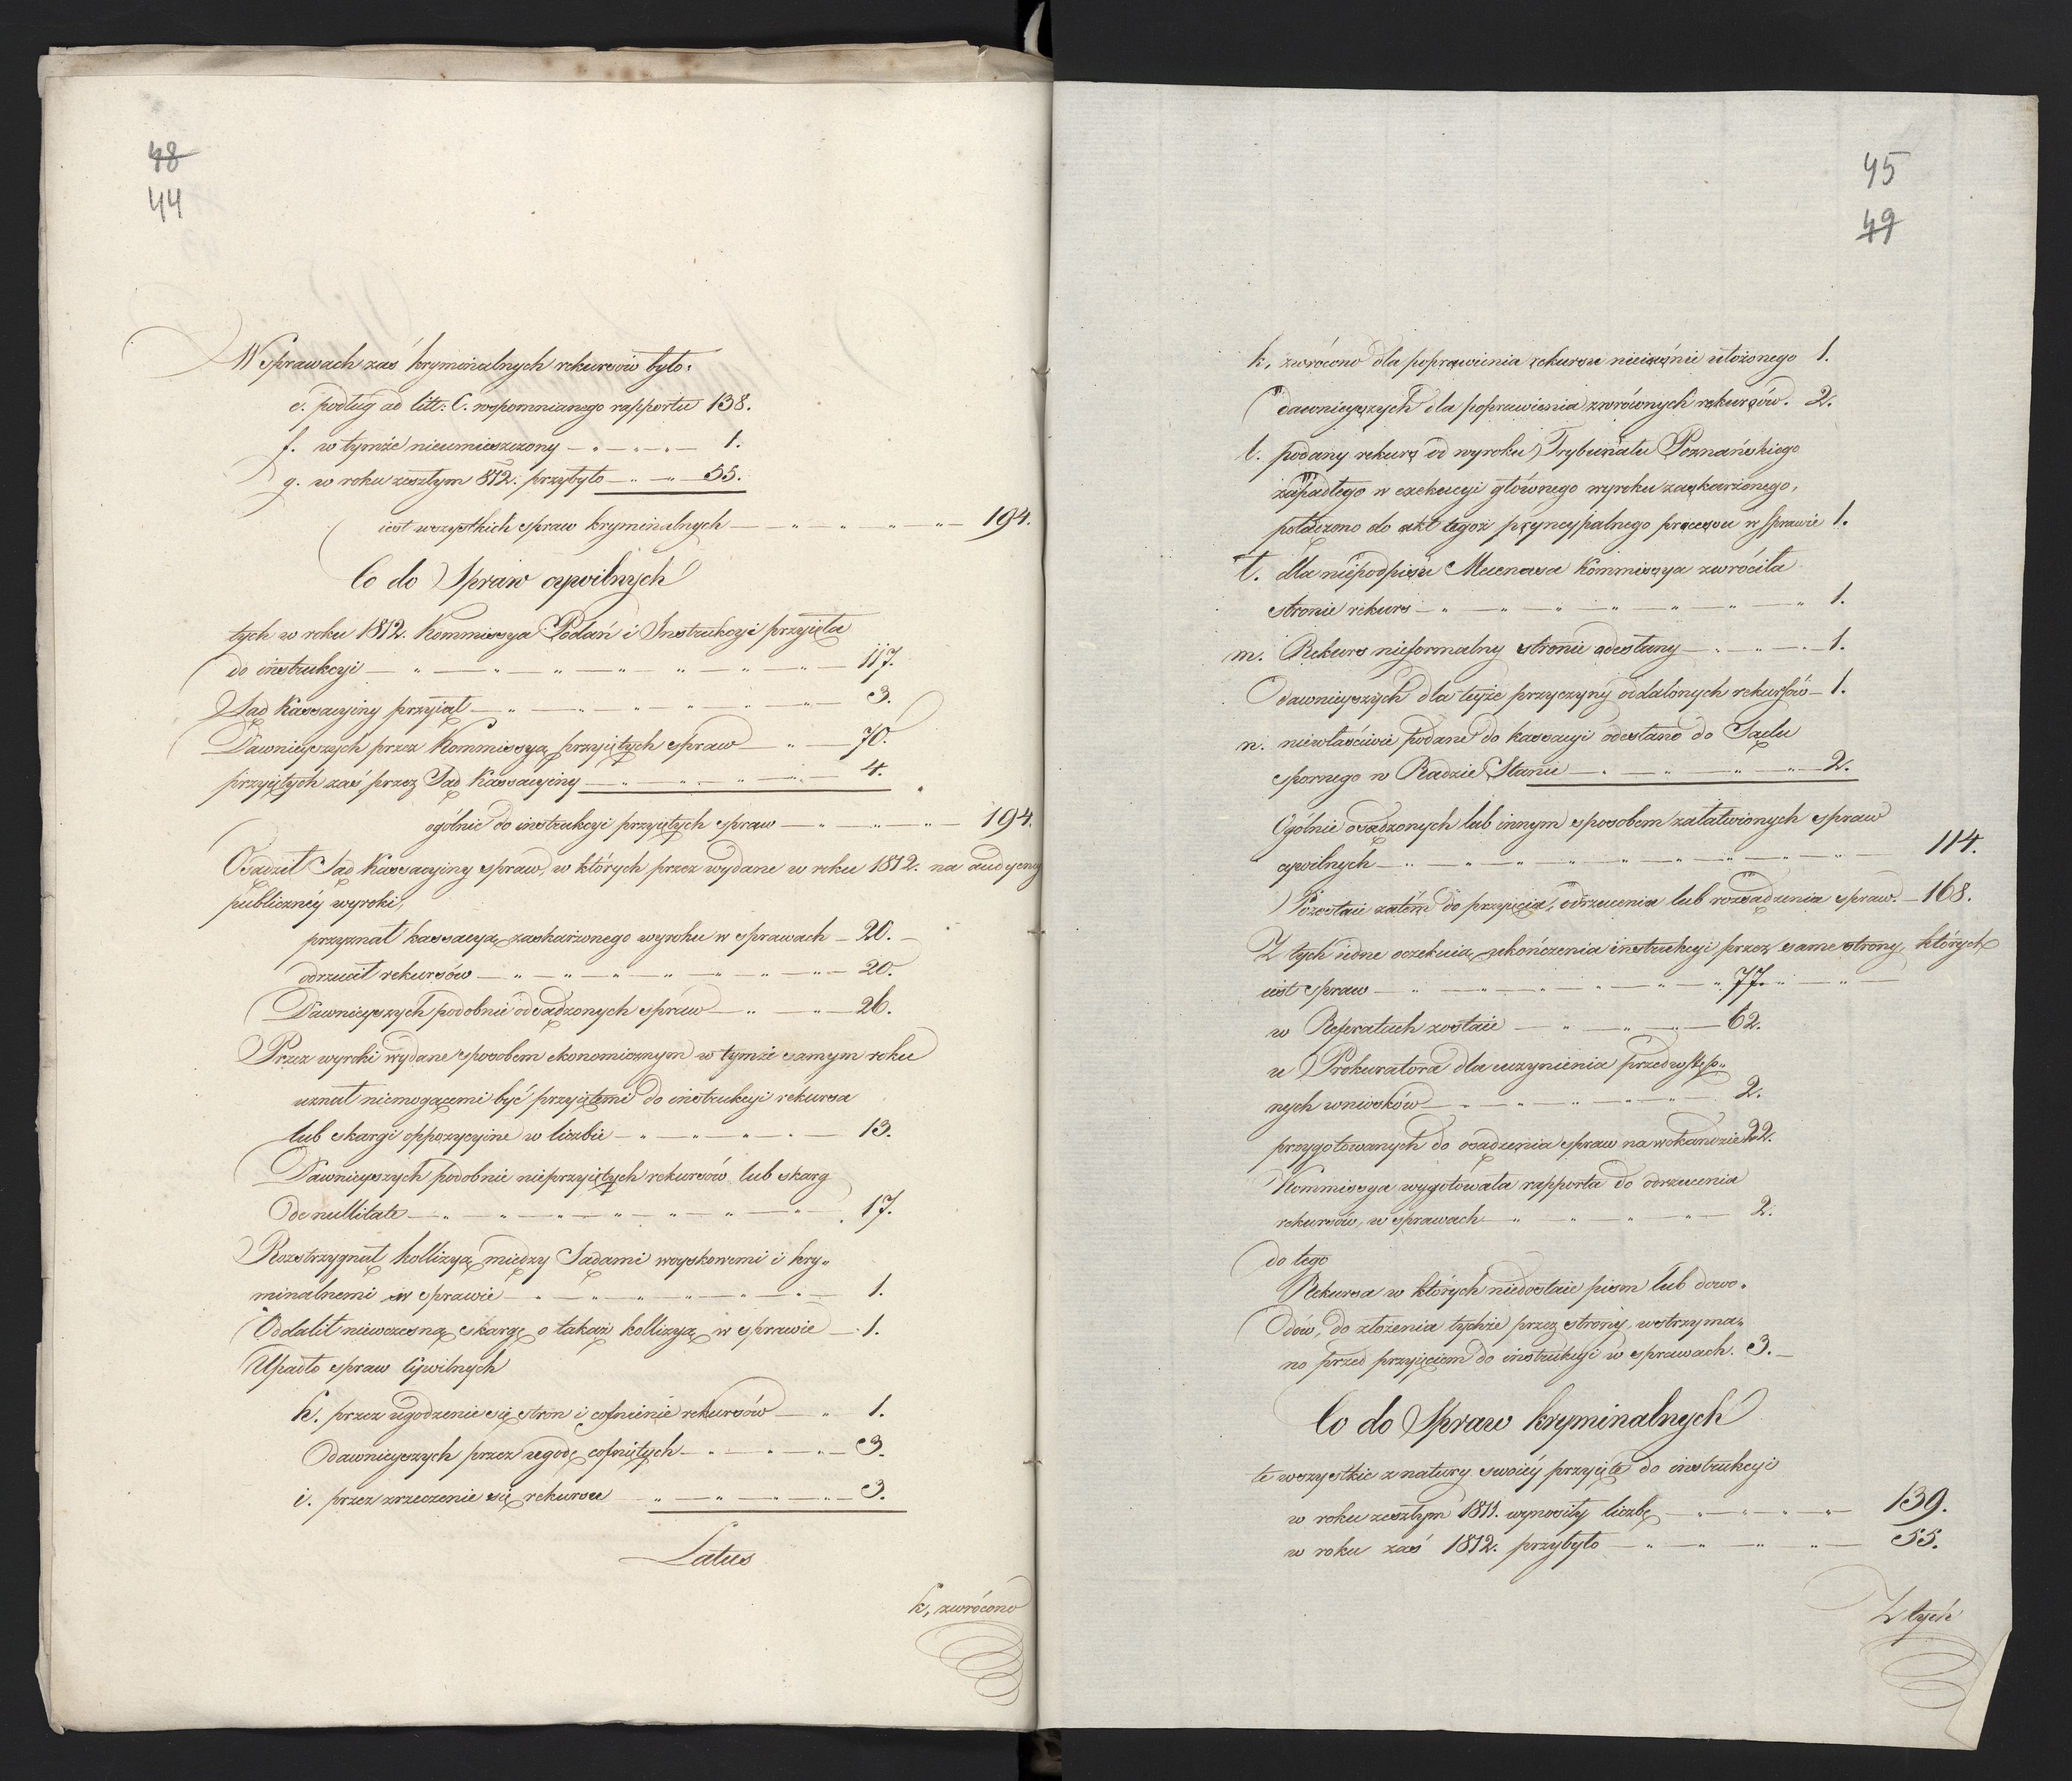 48
44
W sprawach zaś kryminalnych rekursów było:
e. podług ad litt: C. wspomnianego rapportu 138.
f. w tymże nieumieszczony — „ — „ — 1.
g. w roku zeszłym 812. przybyło — „ — „ — 55.
iest wszystkich spraw kryminalnych — „ — „ — „ — 194.
Co do Spraw cywilnych
tych w roku 1812. Kommissya Podań i Instrukcyi przyięła
do instrukcyi — „ — „ — „ — „ — 117.
Sąd Kassacyiny przyiął — „ — „ — „ — „ — 3.
Dawnieyszych przez Kommissyą przyiętych spraw — „ — 70.
przyiętych zaś przez Sąd Kassacyiny — „ — „ — „ — 4.
ogólnie do instrukcyi przyiętych spraw — „ — „ — „ — 194.
Osądził Sąd Kassacyiny spraw, w których przez wydane w roku 1812. na audyencyi
publicznéy wyroki,
przyznał kassacyą zaskarżonego wyroku w sprawach — 20. —
odrzucił rekursów — „ — „ — „ — „ — „ — 20.
Dawnieyszych podobnie odsądzonych spraw — „ — „ — 26.
Przez wyroki wydane sposobem ekonomicznym w tymże samym roku
uznał niemogącemi być przyiętemi do instrukcyi rekursa
lub skargi oppozycyine w liczbie — „ — „ — „ — 13.
Dawnieyszych podobnie nieprzyiętych rekursów lub skarg
de nullitate — „ — „ — „ — „ — „ — 17.
Rozstrzygnął kollizyą między Sądami woyskowemi i kry„
minalnemi w sprawie — „ — „ — „ — „ — 1.
Oddalił niewczesną skargę o takąż kollizyą w sprawie — 1.
Upadło spraw Cywilnych
h. przez ugodzenie się stron i cofnienie rekursów — „ 1.
dawnieyszych przez ugodę cofniętych — „ — „ — 3.
i. przez zrzeczenie się rekursu „ — „ — „ — 3.
Latus
k, zwrócono
45
49
k, zwrócono dla poprawienia rekursu nieiaśnie ułożonego 1.
dawnieyszych dla poprawienia zwrównych rekursów. 2.
l. podany rekurs od wyroku Trybunału Poznańskiego
zapadłego w exekucyi głównego wyroku zaskarżonego,
połączono do akt tegoż pryncypalnego processu w sprawie 1.
ł. dla niepodpisu Mecenasa Kommissya zwróciła
stronie rekurs — „ — „ — „ — „ — „ 1.
m. Rekurs nieformalny stronie odesłany — „ — „ — 1.
dawnieyszych dla teyże przyczyny oddalonych rekursów — 1.
n. niewłaściwie podane do kassacyi odesłano do Sądu
spornego w Radzie Stanu — „ — „ — „ — „ — 2.
Ogólnie osądzonych lub innym sposobem załatwionych spraw
cywilnych — „ — „ — „ — „ — „ — „ — 114.
Pozostaie zatém do przyięcia, odrzucenia lub rozsądzenia spraw. — 168.
Z tych iedne oczekuią ukończenia instrukcyi przez same strony, których
iest spraw — „ — „ — „ — „ — „ 77. — „ —
w Referatach zostaie — „ — „ — „ — 62.
u Prokuratora dla uczynienia przedwstęp„
nych wniosków — „ — „ — „ — „ — 2.
przygotowanych do osądzenia spraw na wokandzie 22.
Kommissya wygotowała rapporta do odrzucenia
rekursów, w sprawach — „ — „ — „ — 2.
do tego
Rekursa w których niedostaie pism lub dowo„
dów, do złożenia tychże przez strony, wstrzyma„
no przed przyięciem do instrukcyi w sprawach. 3. —
Co do Spraw kryminalnych
te wszystkie z natury swoiéy przyięte do instrukcyi
w roku zeszłym 1811. wynosiły liczbę — „ — „ — „ — 139.
w roku zaś 1812. przybyło — „ — „ — „ — „ — 55.
Z tych